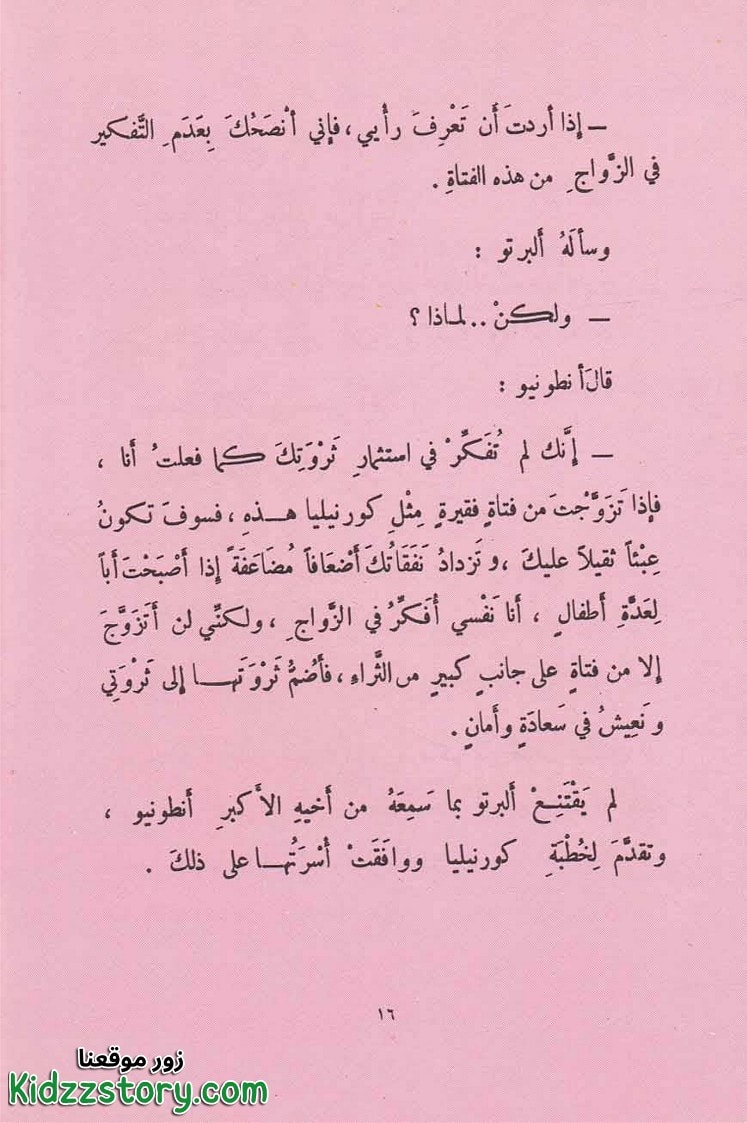 – إذا أردتَ أَن تَعْرِفَ رأْيي ، فإني أنْصَحُكَ بِعَدَمِ التَّفكير
في الزَّواجِ من هذه الفتاةِ .
وسألَهُ ألبرتو :
– ولكنْ .. لماذا ؟
قالَ أنطونيو :
– إنَّك لم تُفَكِّرْ في استثمارِ ثَرْوَتِكَ كما فعلتُ أَنا ،
فإذا تَزَوَّجْتَ من فتاةٍ فقيرةٍ مِثْلِ كورنيليا هذهِ ، فسوفَ تكونُ
عِبْئاً ثقيلاً عليكَ ، وتَزدادُ نَفَقَاتُكَ أَضعَافاً مُضَاعَفَةً إذا أَصْبَحْتَ أَباً
لِعَدَّةِ أطفالٍ ، أَنا نَفْسي أُفَكِّرُ في الزَّواجِ ، ولكنِّي لن أَتَزَوَّجَ
إلا من فتاةٍ على جانبٍ كبيرٍ من الثَّراءِ ، فأَضُمُّ ثَرْوَتَها إلى ثَرْوَتِي
ونَعِيشُ في سَعادَةٍ وأَمانٍ .
لم يَقْتَنِعْ ألبرتو بما سَمِعَهُ من أَخيهِ الأَكبرِ أَنطونيو ،
وتقدَّمَ لِخُطْبَةِ كورنيليا ووافَقَتْ أُسْرَتُها على ذلكَ .
١٦
زور موقعنا
Kidzzstory.com